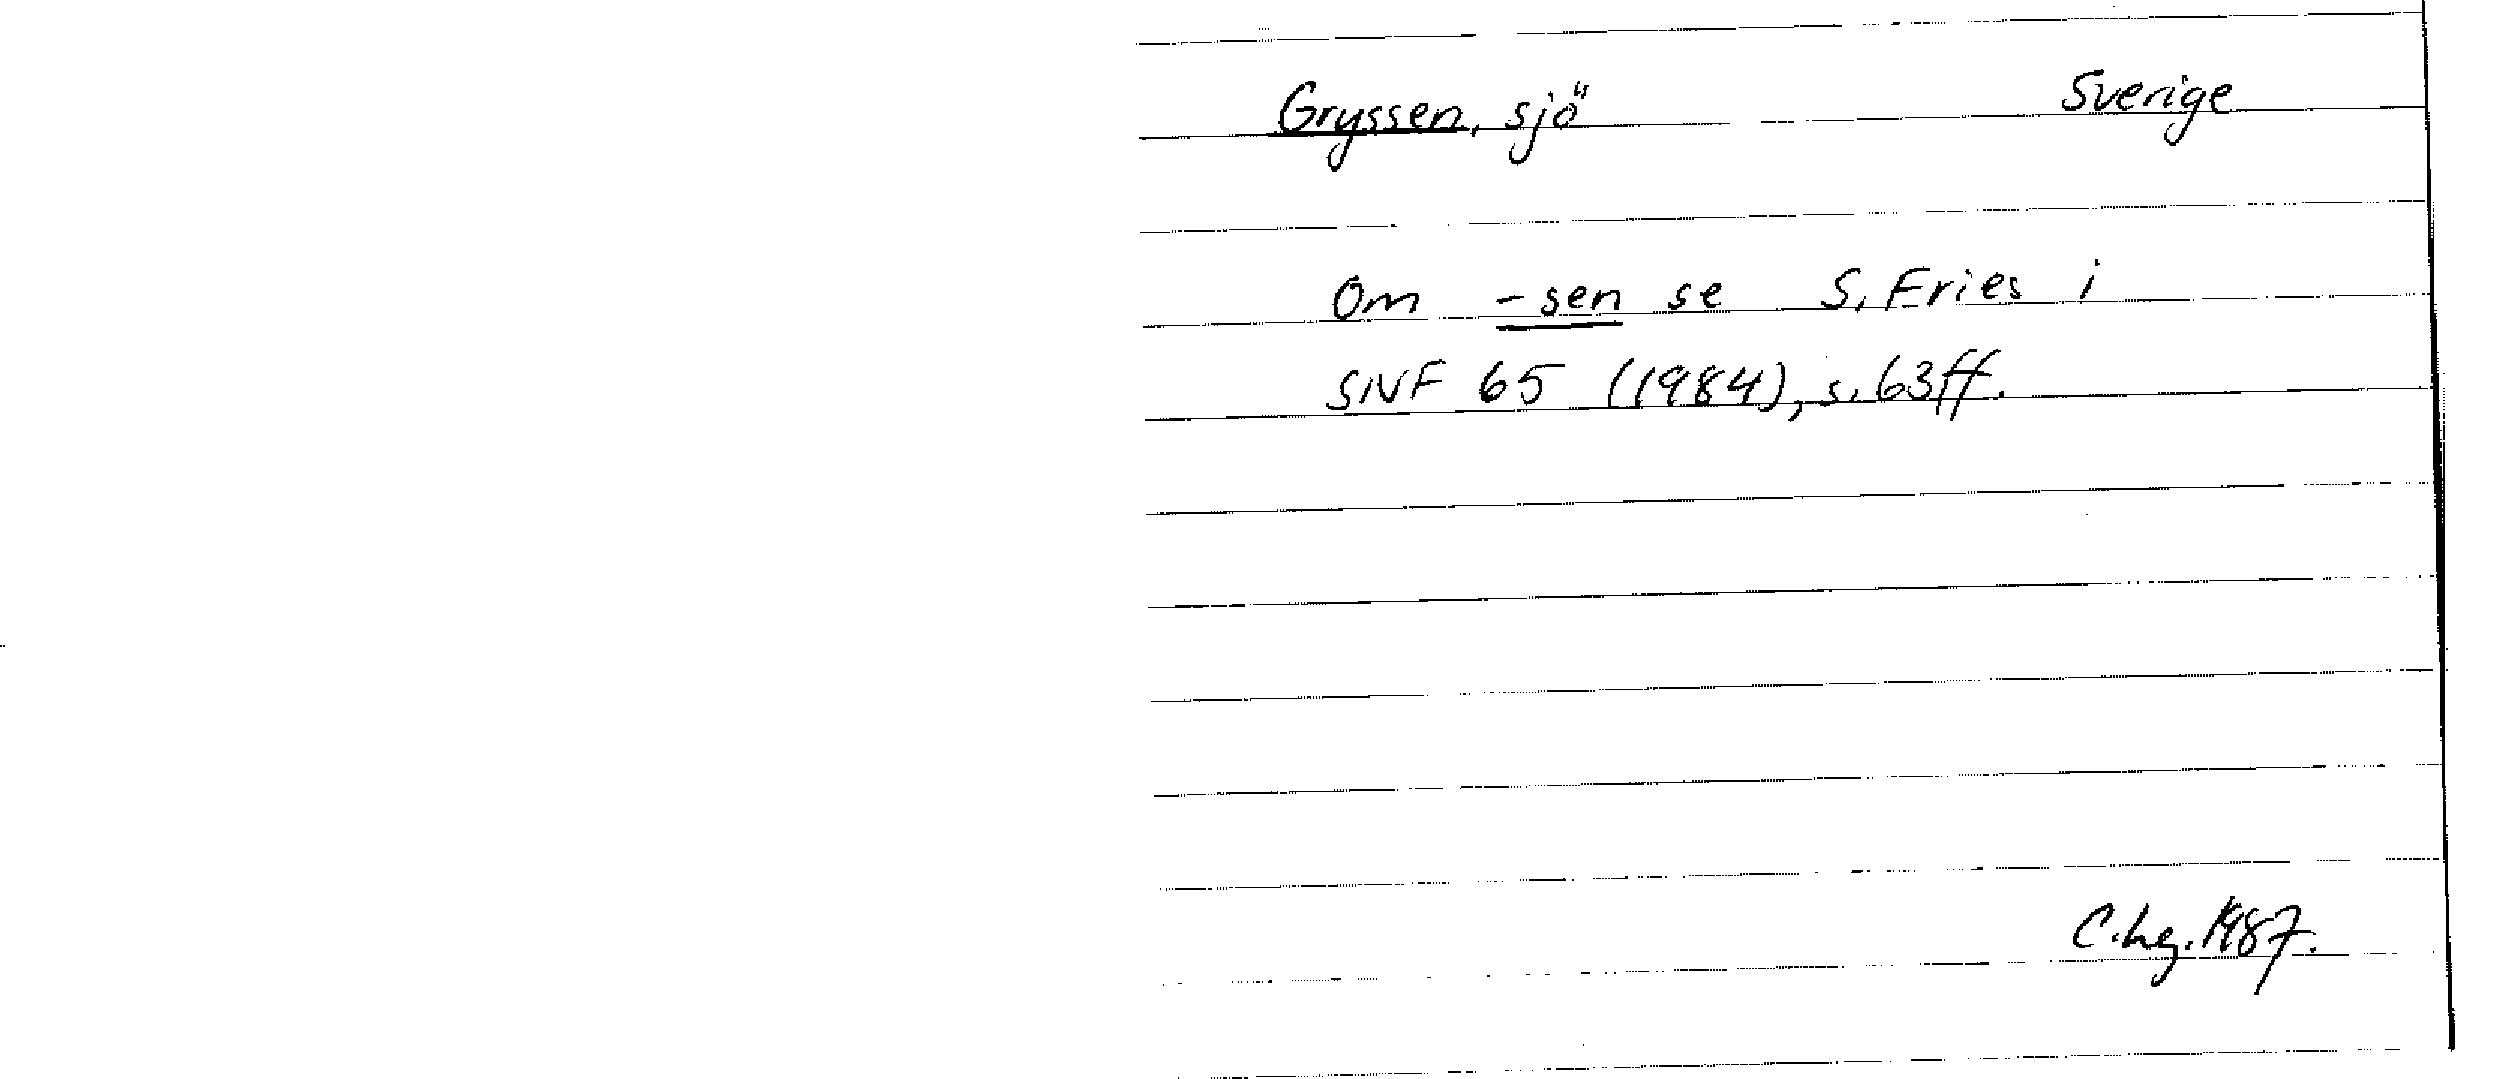 Gryssen, sjö Sverige
Om -sen se S. Fries i
SNF 65 (1984), s. 63ff.
C.hg. 1987.